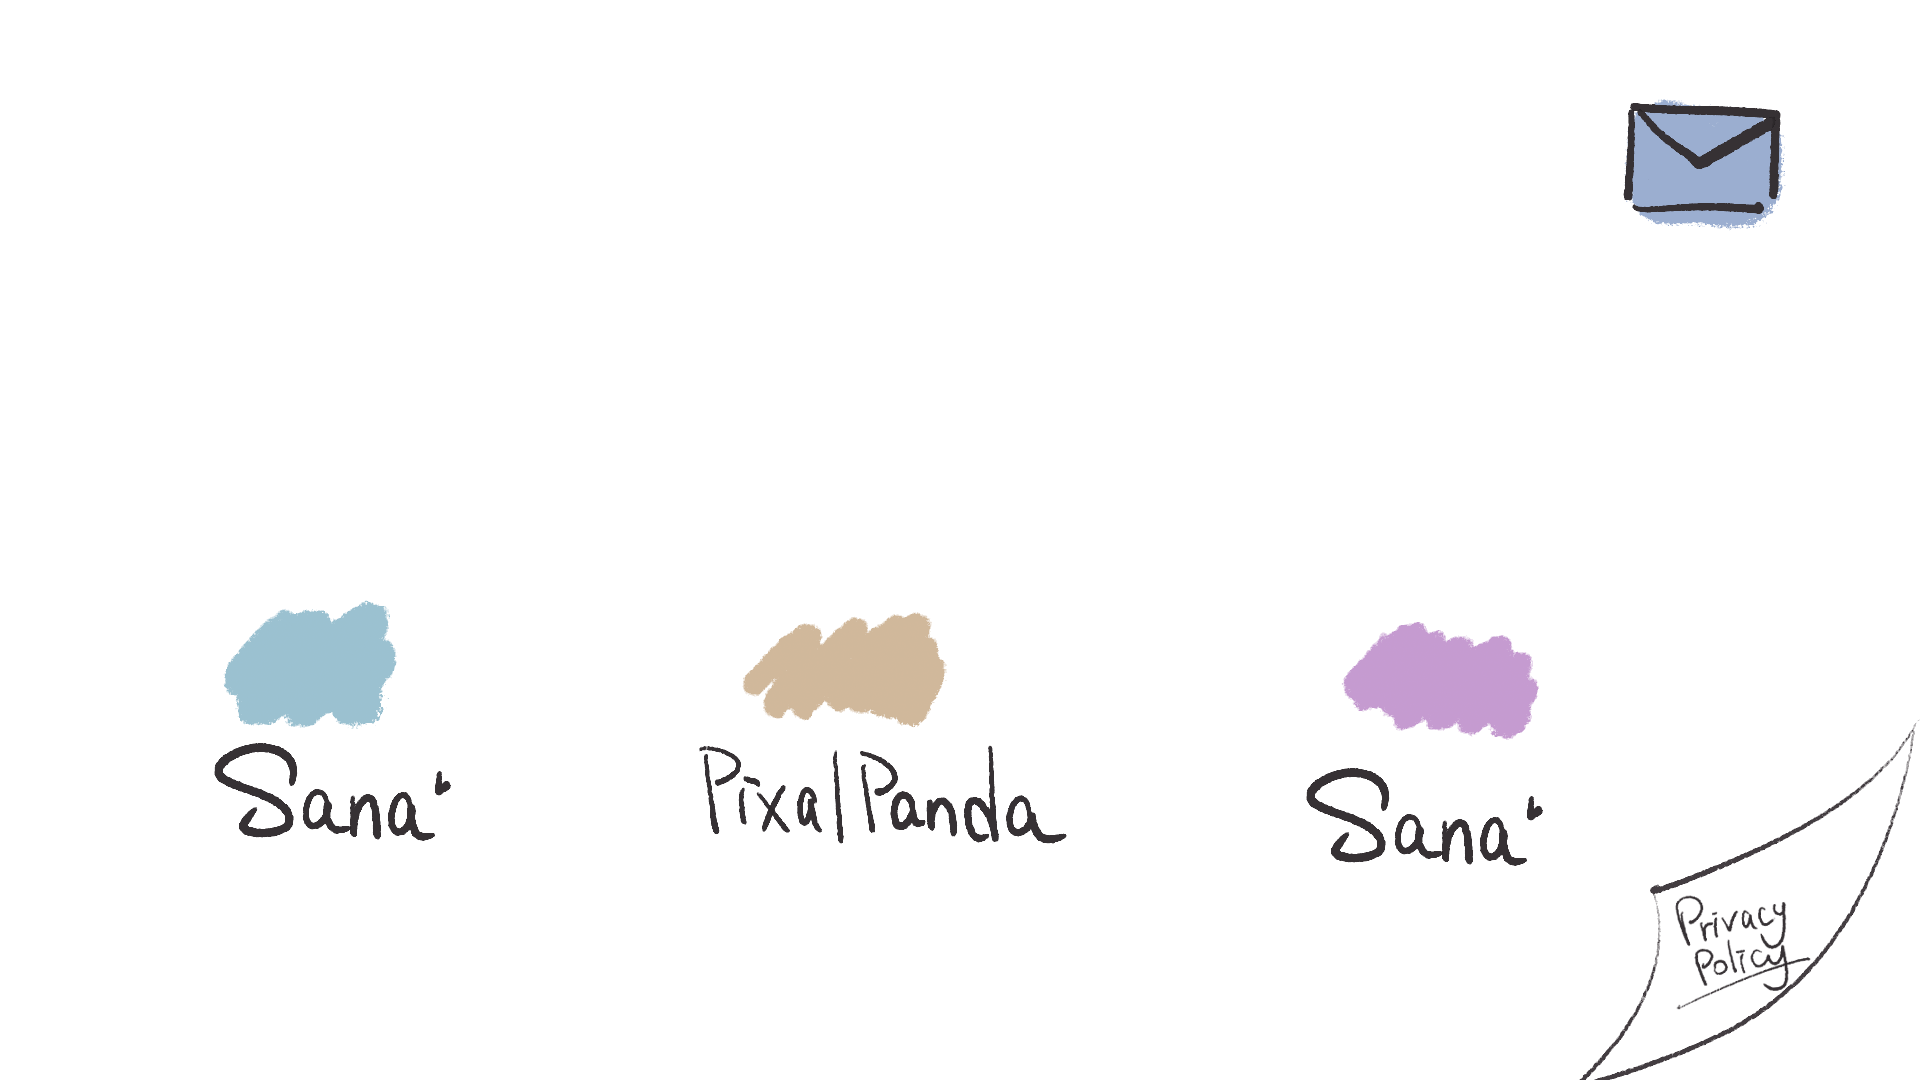 Sana
PixalPanda
Sana
Privacy
Policy